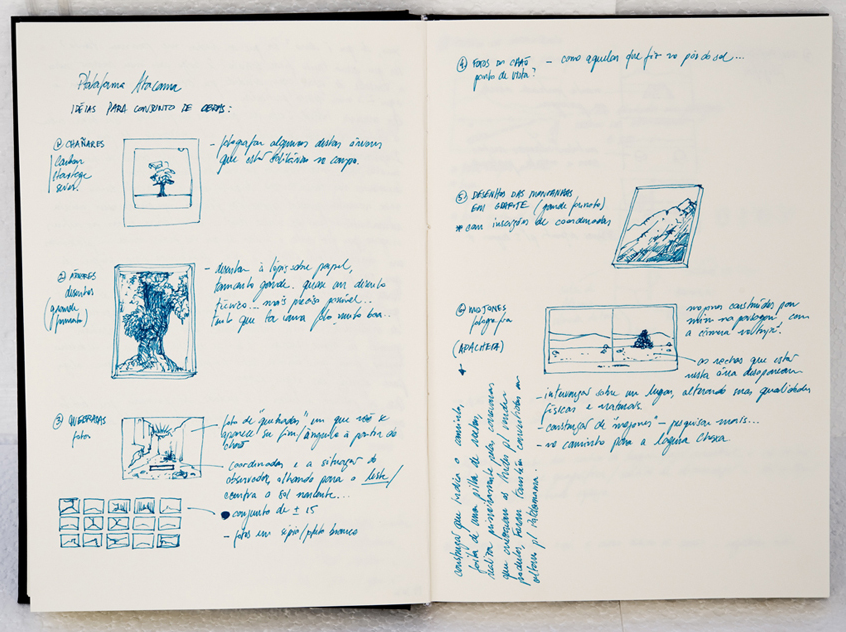 Plataforma Atacama
IDÉIAS PARA CONJUNTO DE OBRAS:
① CHAÑARES
- fotografar algumas destas árvores
que estão solitárias no campo.
② ÁRVORES
desenhos
(grande
formato)
- desenhar à lápis sobre papel,
tamanho grande. quase um desenho
técnico... mais preciso possível...
tudo que ter uma foto muito boa...
③ QUEBRADAS
fotos
- foto de "quebradas" em que não se
aparece seu fim/ângulo à partir do
chão
coordenadas e a situação do
observador, olhando para o leste/
contra o sol nascente...
● conjunto de ± 15
- fotos em sépia/preto branco
④ FOTOS DO CHÃO - como aquelas que fiz no pôr do sol...
ponto de vista?
⑤ DESENHOS DAS MONTANHAS
EM GRAFITE (grande formato)
* com inscrições de coordenadas
⑥ MOJONES
fotografia
(APACHETA)
*
mojones construídos por
mim na paisagem. com
a câmera
as rochas que estão
nesta área desaparecem
- intervenção sobre um lugar, alterando suas qualidades
físicas e naturais.
- construção de "mojones" - pesquisar mais...
- no caminho para a laguna Chaxa
construção que indica o caminho,
feita de uma pilha de pedras,
realiza principalmente pelos caravaneiros
que cruzavam os Andes p/ vender
produtos, foram também construídas em
p/ Pachamama...